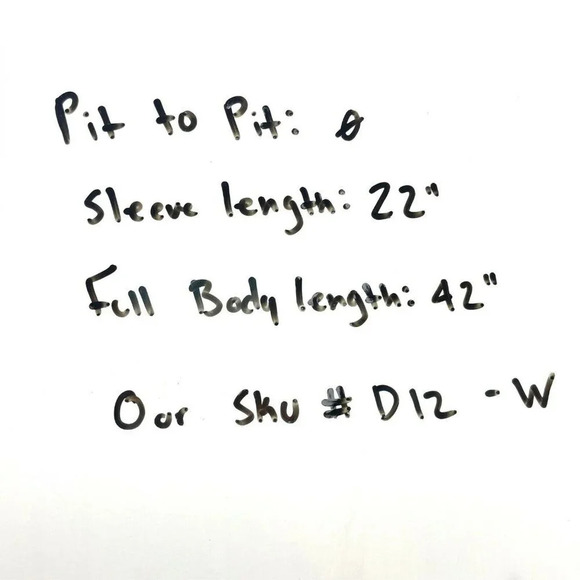 Pit to Pit: Ø
Sleeve length: 22"
Full Body length: 42"
Our Sku # D12 - W